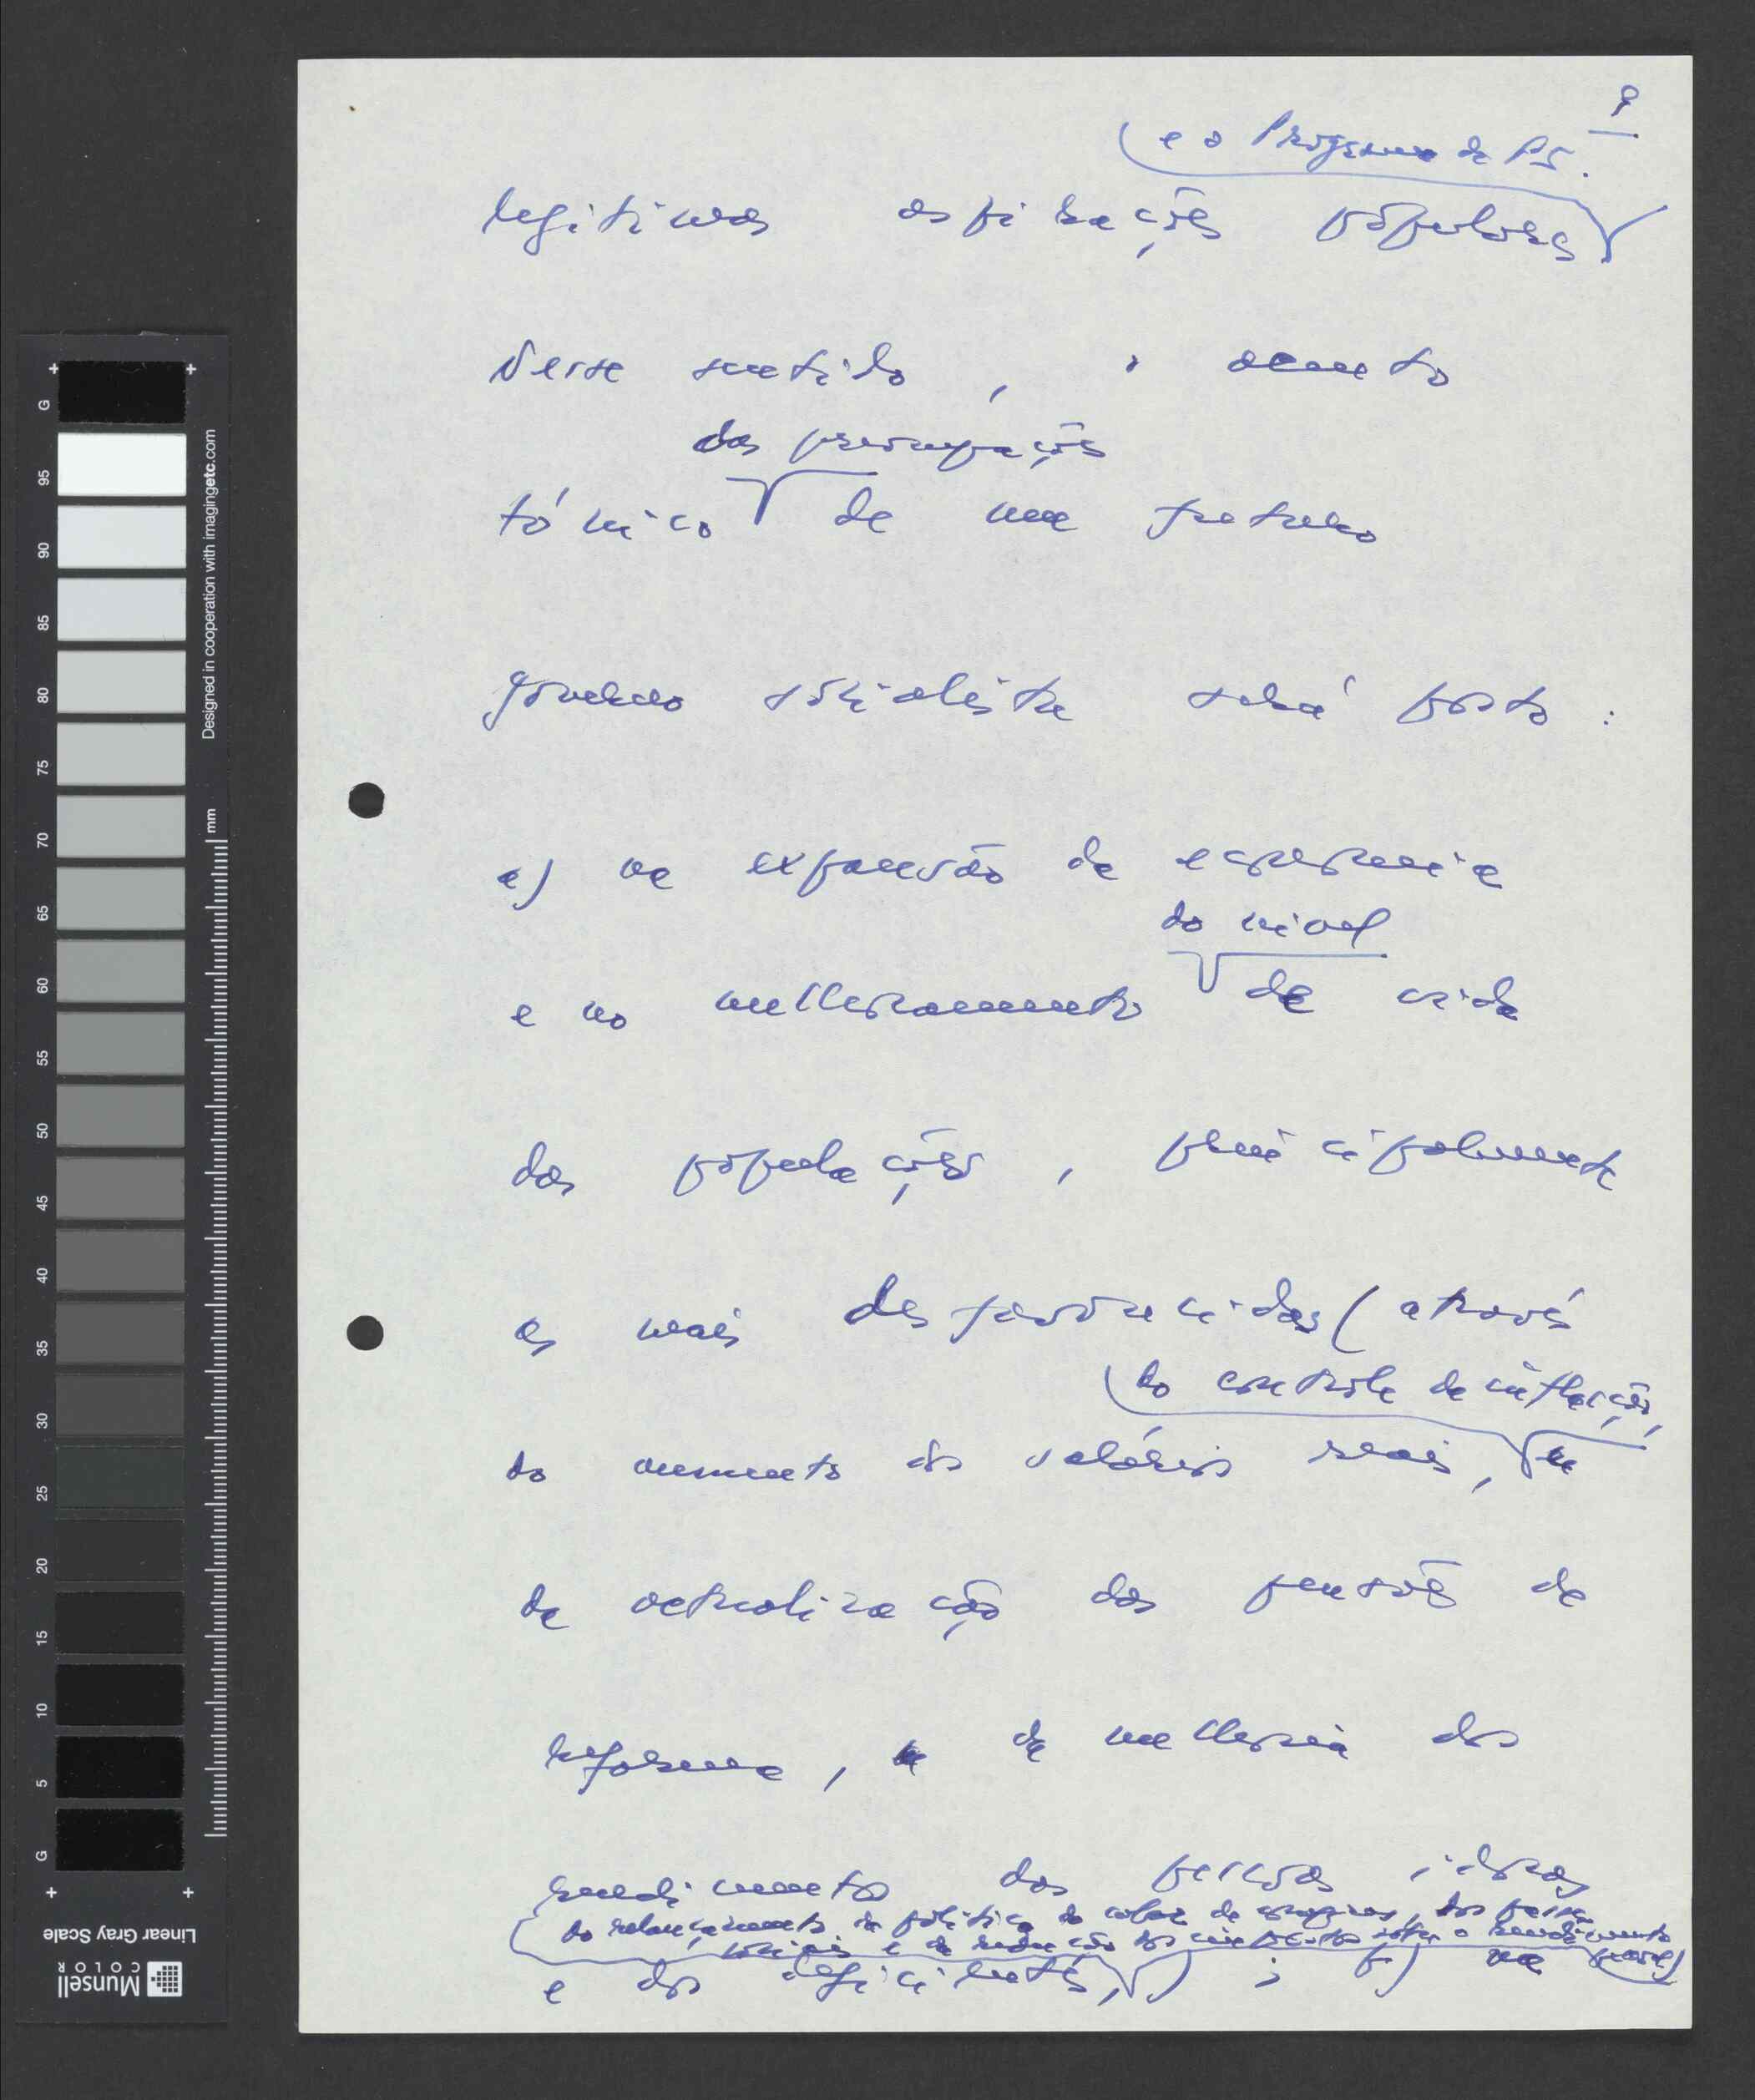 9
(e o Programa do PS.
legitimas aspirações populares
Nesse sentido, o acento
das preocupações
tónico de um futuro
governo socialista será posto:
a) na expansão da economia
do nível
e no melhoramento de vida
das populações, principalmente
as mais desfavorecidas (através
do controle da inflação,
do aumento dos salários reais,
da actualização das pensões de
reforma, da melhoria dos
rendimentos das pessoas idosas
do relançamento da política do de
sociais e da redução dos impostos sobre o rendimento
e dos deficientes,) ; b) na
G
95
90
85
80
75
70
65
60
55
50
45
40
35
30
25
20
15
10
5
G
mm
Designed in cooperation with imagingetc.com
Linear Gray Scale
Munsell
COLOR